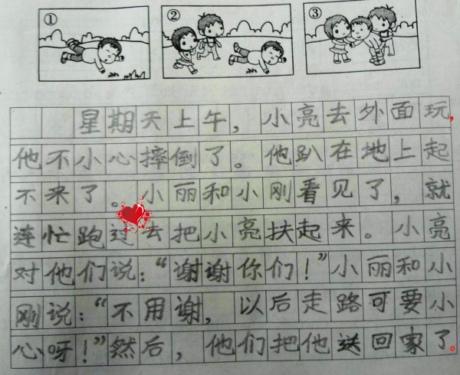 ① ② ③
星期天上午，小亮去外面玩，
他不小心摔倒了。他趴在地上起
不来了。小丽和小刚看见了，就
连忙跑过去把小亮扶起来。小亮
对他们说：“谢谢你们！”小丽和小
刚说：“不用谢，以后走路可要小
心呀！”然后，他们把他送回家了。